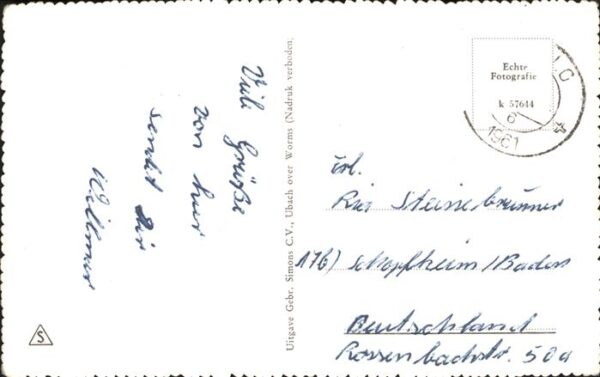 Viele Grüße
von hier
sendet Dir
Uitgave Gebr. Simons C.V., Ubach over Worms (Nadruk verboden.
Echte
Fotografie
k 57644
6
1961
Frl.
Steinebrunner
17b) Schopfheim/Baden
Deutschland
50a
S